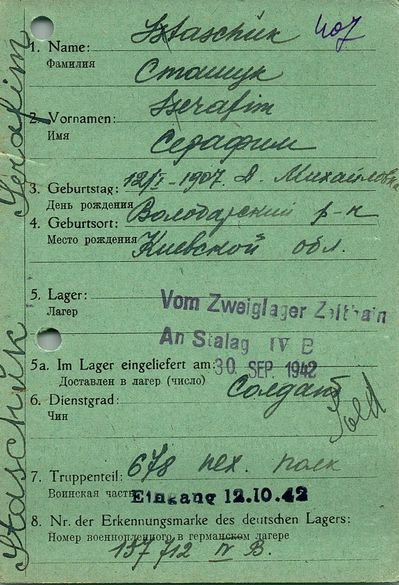 Sztaschuk 407
1. Name:
Фамилия
Сташук
Szerafim
2. Vornamen:
Имя
Серафим
3. Geburtstag: 12/I-1907. д. Михайловка
День рождения
4. Geburtsort: Володарский р-н
Место рождения Киевской обл.
5. Lager:
Лагер
Vom Zweiglager Zeithain
An Stalag IV B
5a. Im Lager eingeliefert am: 30. SEP. 1942
Доставлен в лагер (число)
6. Dienstgrad: Солдат
Чин
Sold
7. Truppenteil: 678 пех. полк
Воинская часть
Eingang 12.10.42
8. Nr. der Erkennungsmarke des deutschen Lagers:
Номер военнопленного в германском лагере
157712 IV B.
Staschuk Serafim